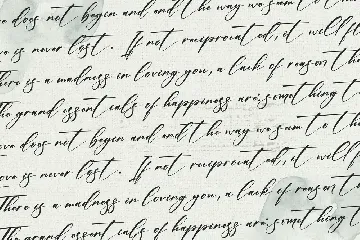 e does not begin and end the way we seem to th
ve is never lost. If not reciprocated, it will fl
here is a madness in loving you, a lack of reason th
the grand essentials of happiness are: something t
ove does not begin and end the way we seem to th
ove is never lost. If not reciprocated, it will
There is a madness in loving you, a lack of reason t
The grand essentials of happiness are: something t